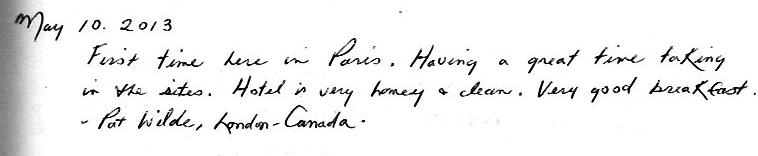 May 10. 2013
First time here in Paris. Having a great time taking
in the sites. Hotel is very homey & clean. Very good breakfast.
- Pat Wilde, London-Canada.